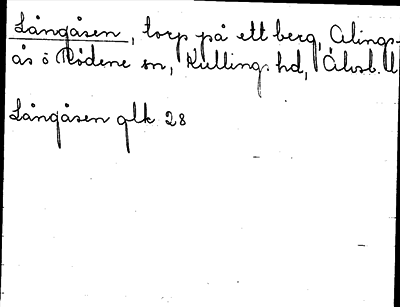 Långåsen, torp på ett berg, Alings-
ås ö Rödene sn, Kulling. hd, Älvsb. l
Långåsen glk 28